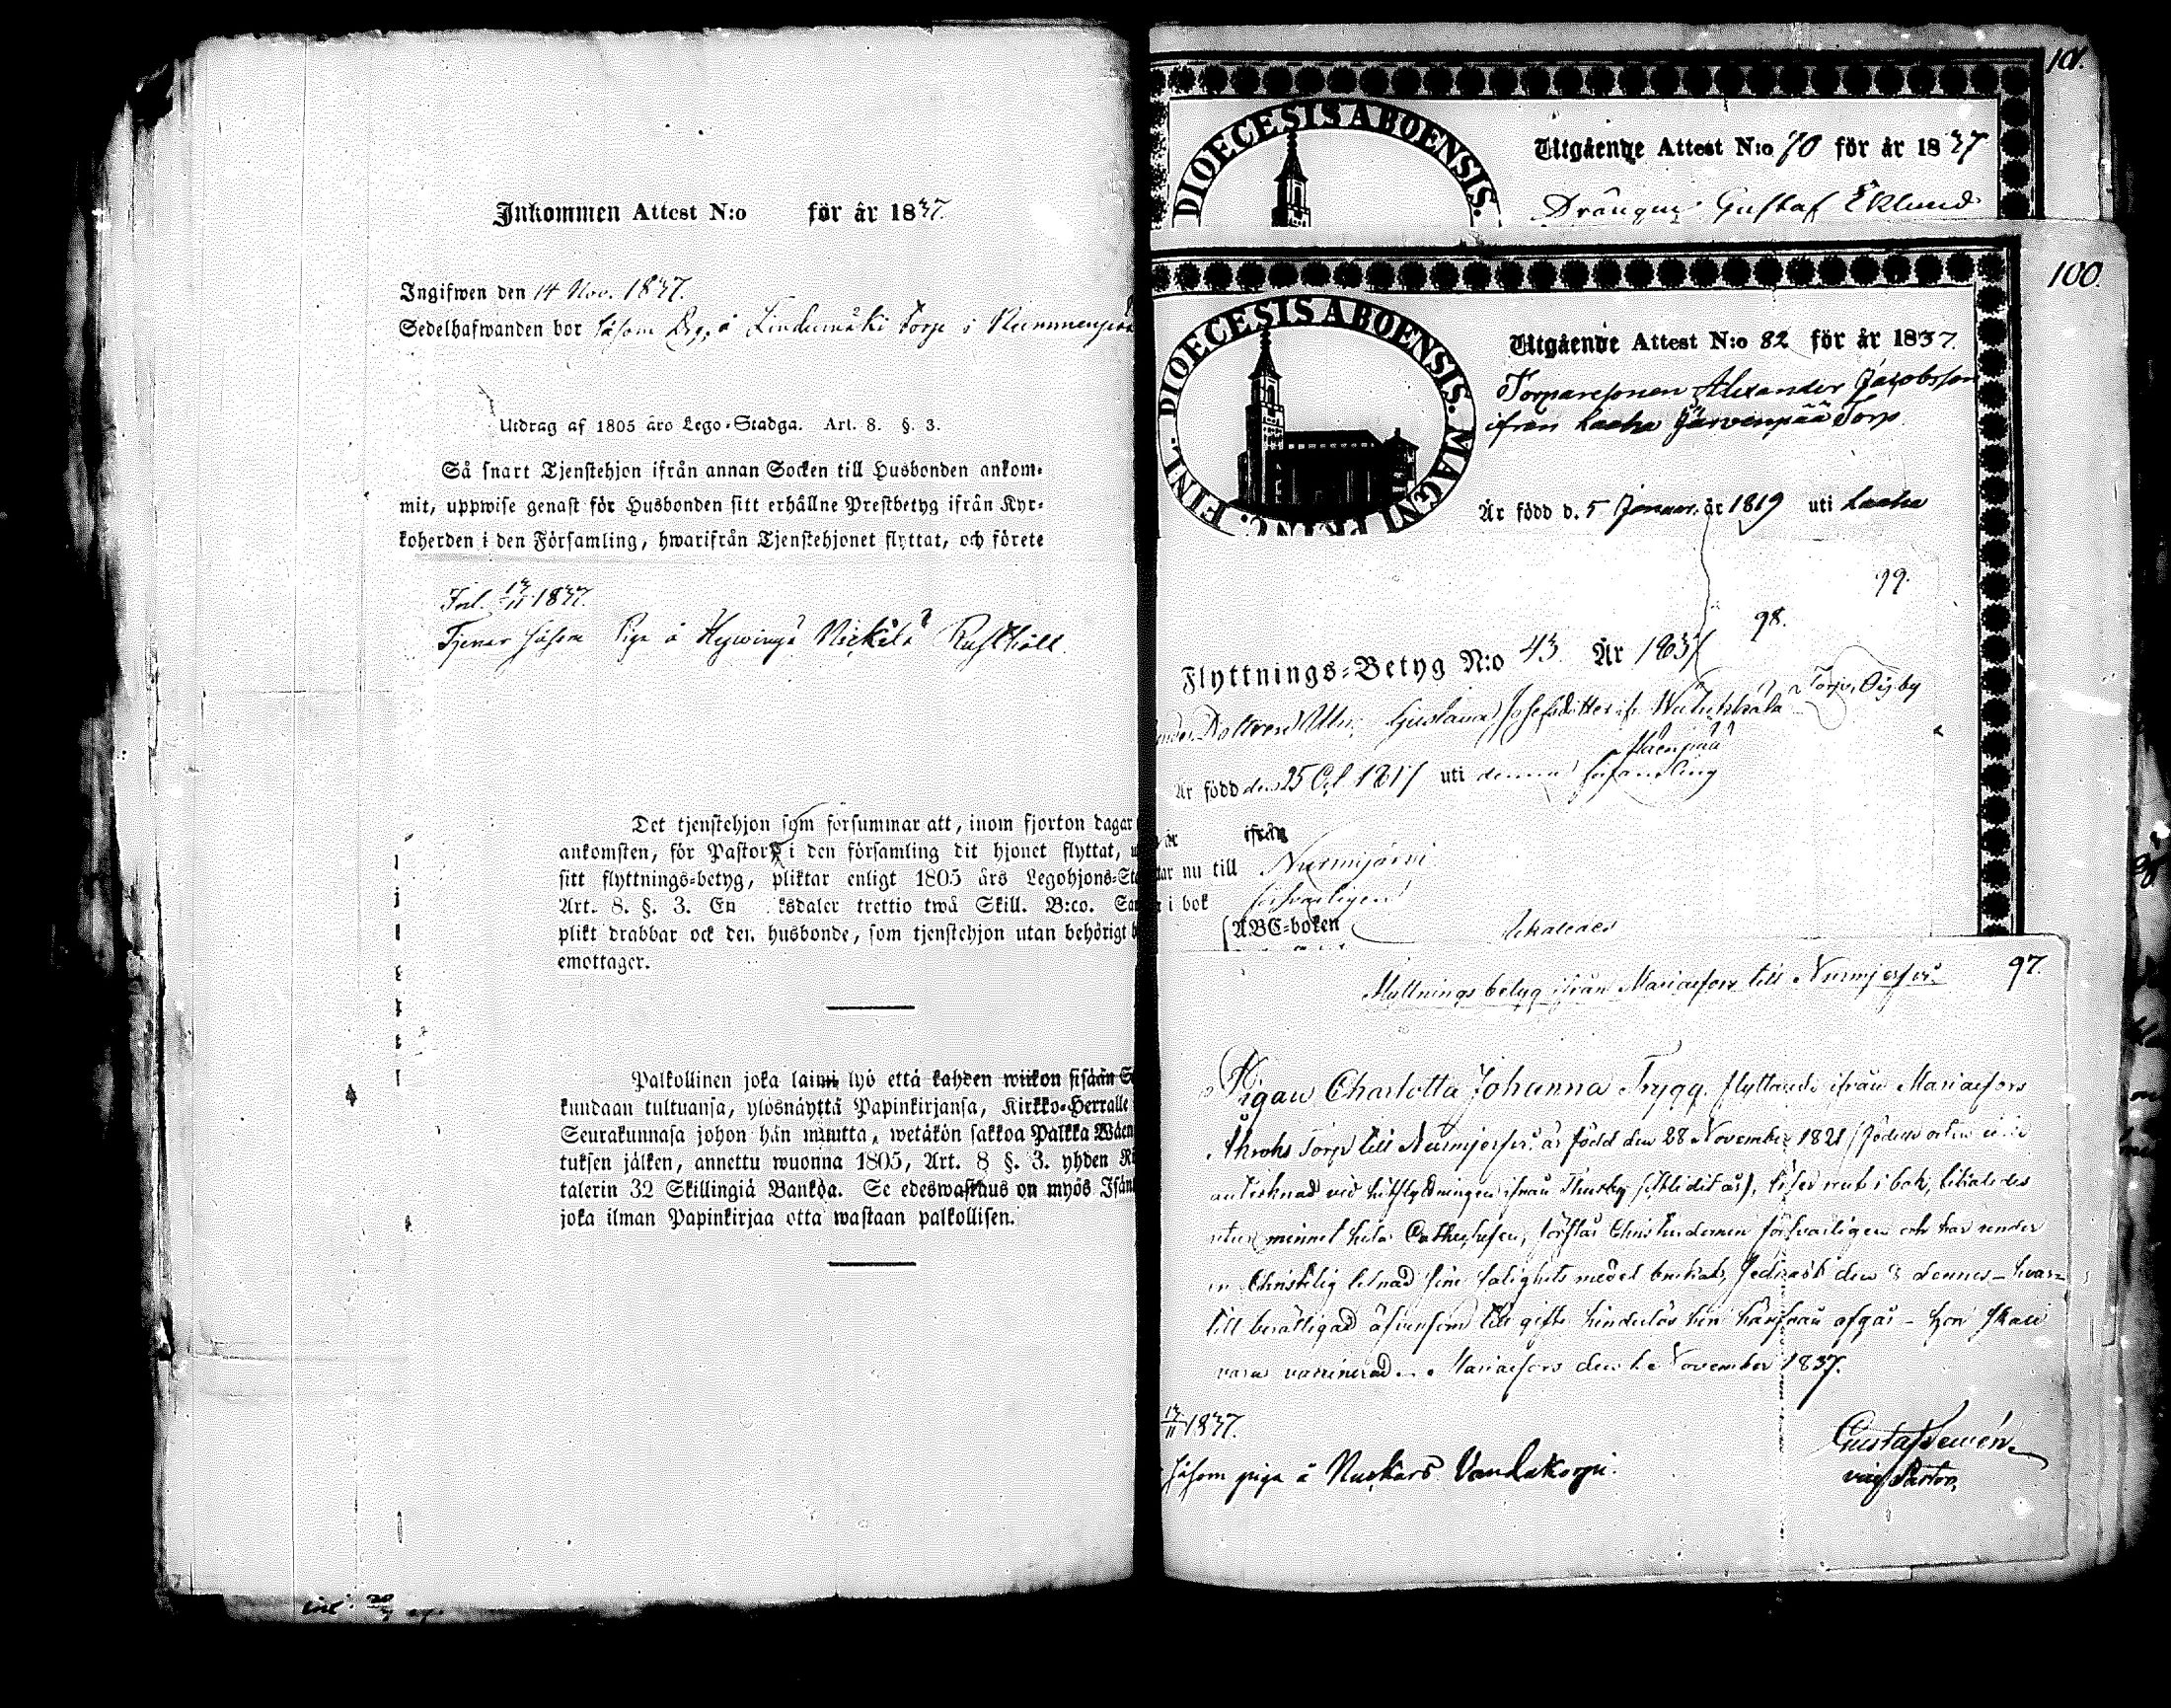 Inkommen Attest N:o för år 1837.
Ingifwen den 14 Nov. 1837.
Sedelhafwanden bor såsom Drg, å Lindumäki Torp i
Utdrag af 1805 års Lego-Stadga. Art. 8. §. 3.
Så snart Tjenstehjon ifrån annan Socken till Husbonden ankom-
mit, uppwise genast för Husbonden sitt erhållne Prestbetyg ifrån Kyr-
koherden i den Församling, hwarifrån Tjenstehjonet flyttat, och förete
Inl. 13/11 1837.
Tjenar såsom Piga å Hywingä Rusthåll.
Det tjenstehjon som försummar att, inom fjorton dagar
ankomsten, för Pastor i den församling dit hjonet flyttat,
sitt flyttnings-betyg, pliktar enligt 1805 års Legohjons-Sta
Art. 8. §. 3. En ksdaler trettio twå Skill. B:co. Sam
plikt drabbar ock den husbonde, som tjenstehjon utan behörigt b
emottager.
Palkollinen joka laimi lyö että kahden wiikon sisään Se
kundaan tultuansa, ylösnäyttä Papinkirjansa, Kirkko-Herralle
Seurakunnasa johon hän muutta, wetäkön sakkoa Palkka Wäen
tuksen jälken, annettu wuonna 1805, Art. 8 §. 3. yhden Ri
talerin 32 Skillingiä Bankoa. Se edeswastaus on myös Isän
joka ilman Papinkirjaa otta wastaan palkollisen.
101.
DIOECESIS ABOENSIS.
Utgående Attest N:o 70 för år 1837
Drängen Gustaf Eklund
100.
DIOECESIS ABOENSIS. MAGNI PRINC. FINL.
Utgående Attest N:o 82 för år 1837.
Torparesonen Alexander Jacobsson
ifrån Laaha Järvenpää Torp
Är född d. 5 Januar. år 1819 uti Laaha
99.
98.
Flyttnings-Betyg N:o 43. År 1837
Dottren Ulr. Gustava Josefsdotter ifr. Torp, Öjsby
Är född den 25 1817 uti denna församling
är ifrån
tar nu till Nurmijärvi
i bok försvarligen
ABC-boken
97.
Flyttnings betyg ifrån Mariaefors till Nurmjerfvi.
Pigan Charlotta Johanna Trygg, flyttande ifrån Mariaefors
Åkroks Torp till Nurmjerfvi är född den 28 November 1821 (födelse orten
antecknad vid hitflyttningen ifrån Thusby sistlidit år), läser rent i bok,
utur minnet hela Cathechesen, förstår Christendomen försvarligen och har under
en Christelig lefnad sine salighets medel brukat, sednast den 3 dennes – hvar-
till berättigad äfvensom till gifte hinderlös hon härifrån afgår – hon skall
vara vaccinerad. – Mariaefors den November 1837.
Gustaf
vice Pastor.
13/11 1837.
såsom piga å Nuckars Vandakorpi.